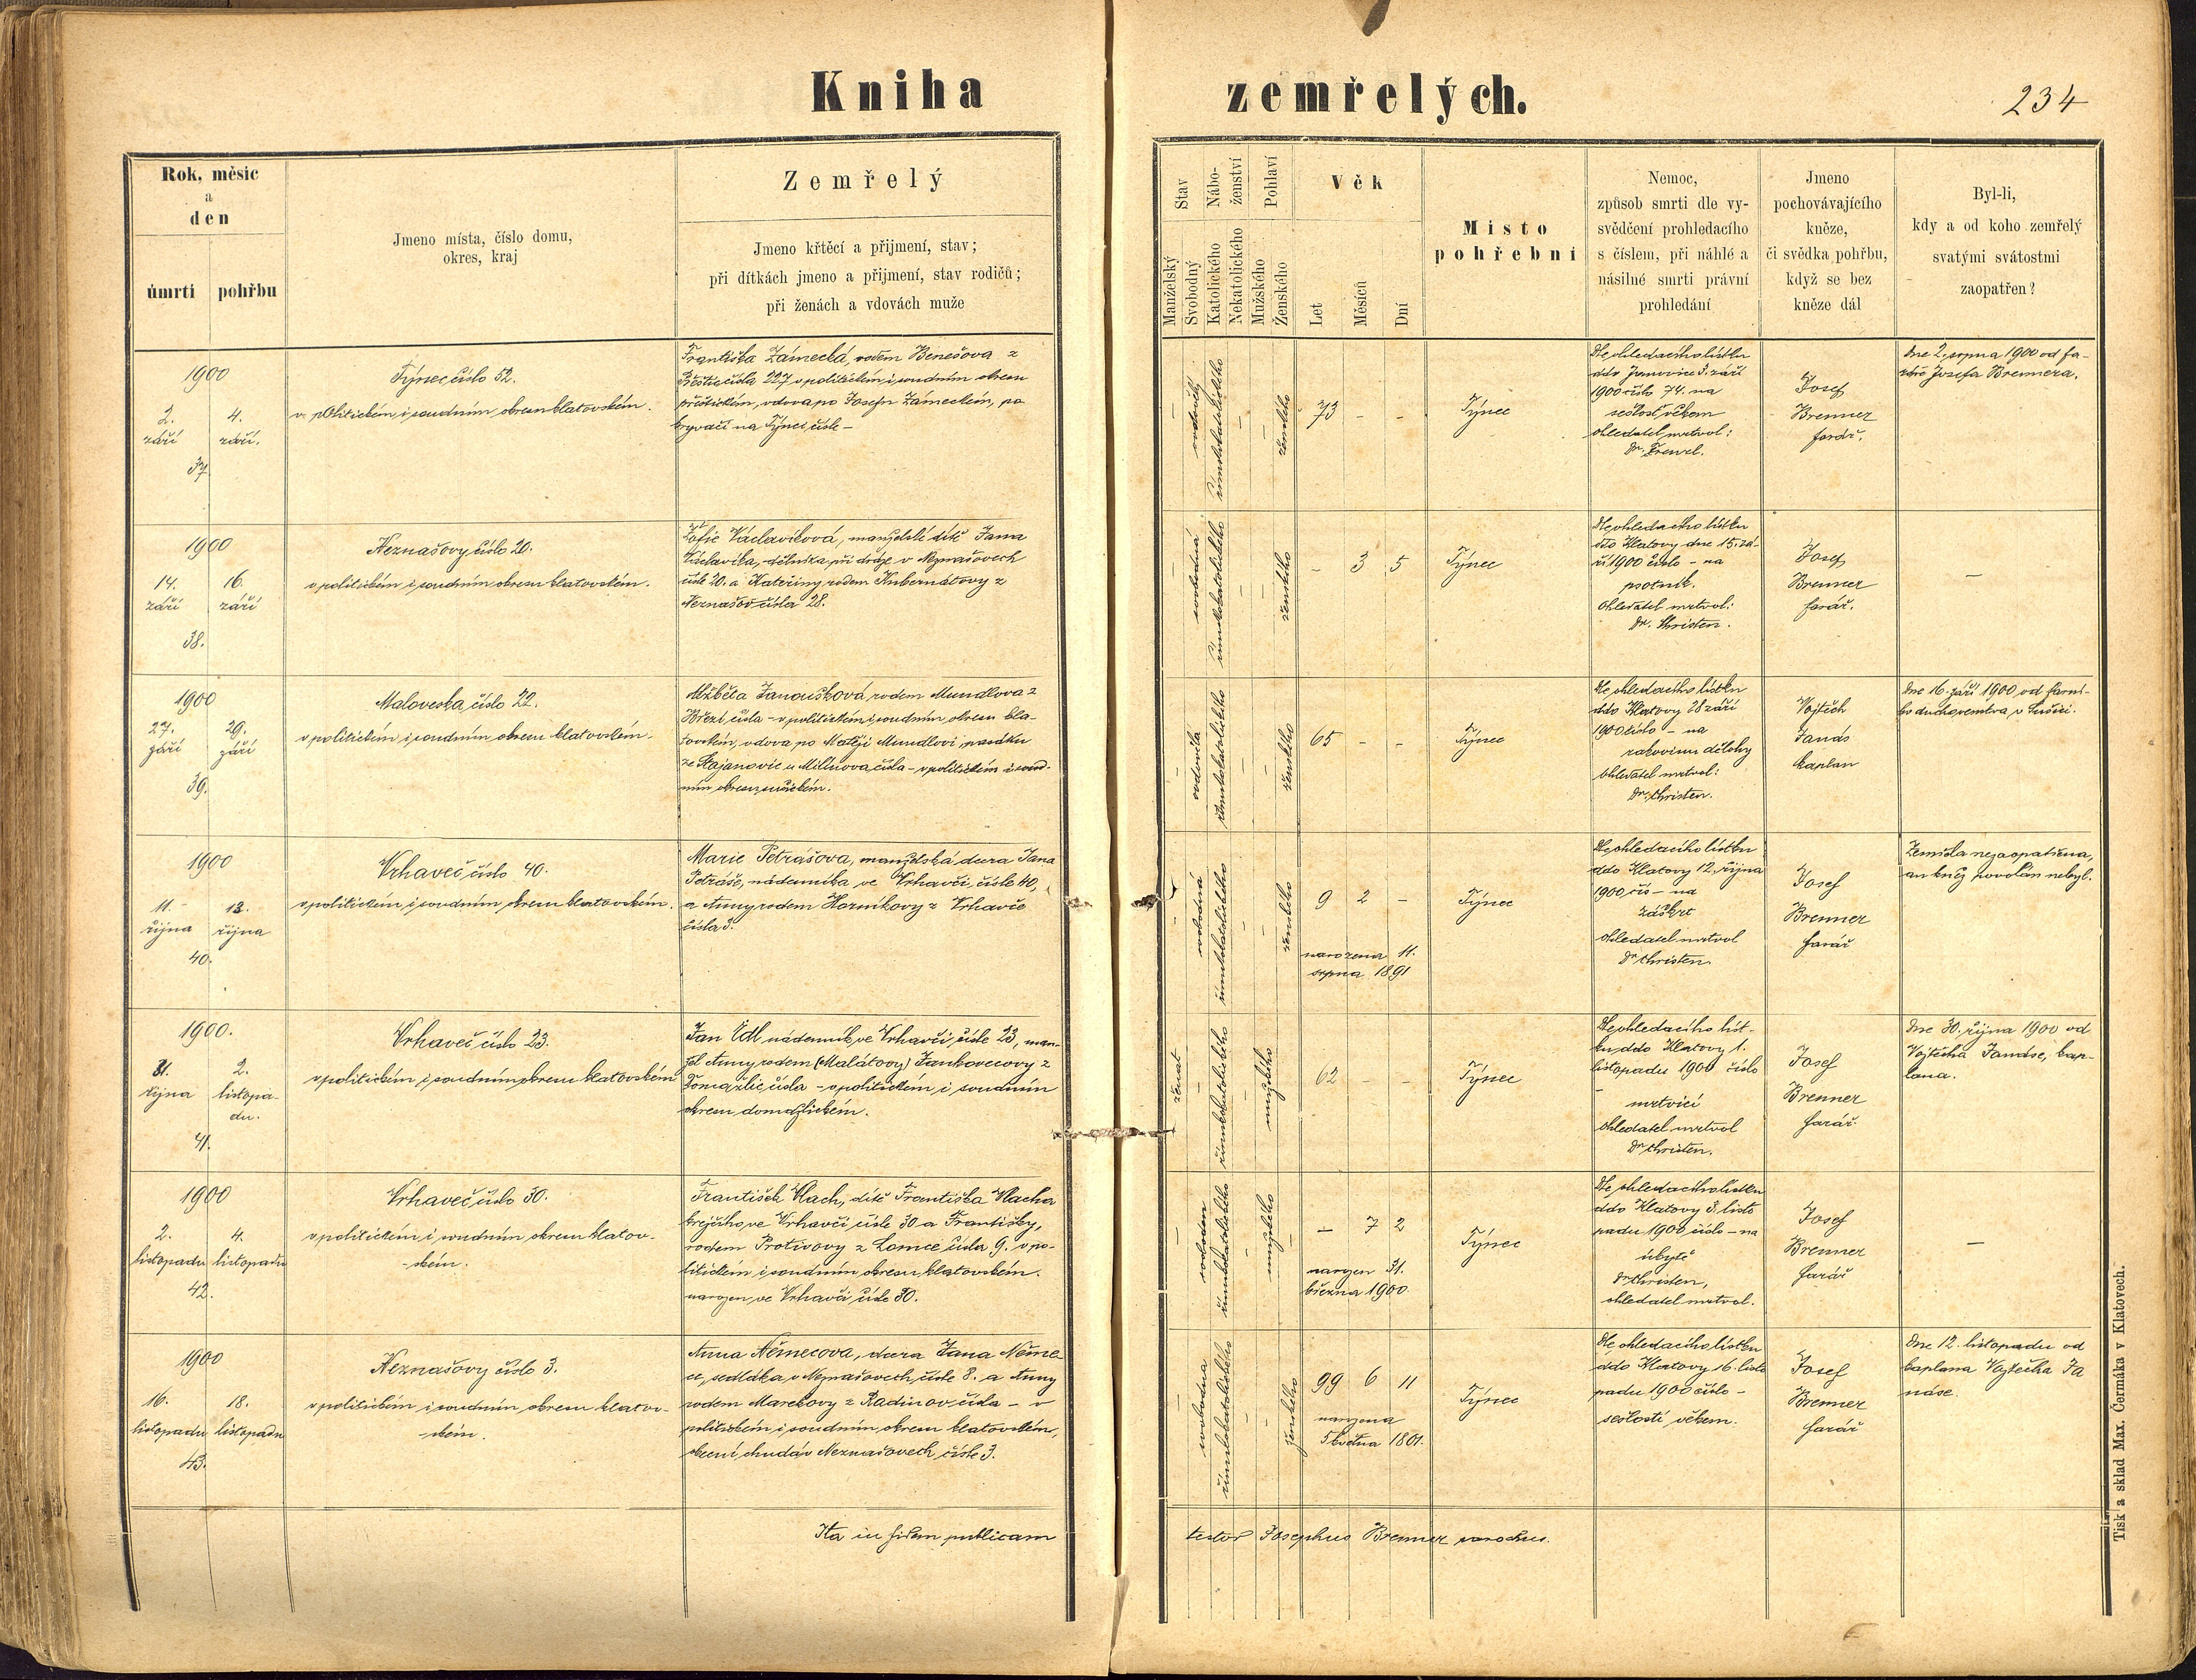 Kniha zemřelých.
234
Rok, měsíc
a
den
úmrtí
pohřbu
Jmeno místa, číslo domu,
okres, kraj
Zemřelý
Jmeno křtěcí a přijmení, stav;
při dítkách jmeno a přijmení, stav rodičů;
při ženách a vdovách muže
Stav
Manželský
Svobodný
Nábo-
ženství
Katolického
Nekatolického
Pohlaví
Mužského
Ženského
Věk
Let
Měsíců
Dní
Místo
pohřební
Nemoc,
způsob smrti dle vy-
svědčení prohledacího
s číslem, při náhlé a
násilné smrti právní
prohledání
Jmeno
pochovávajícího
kněze,
či svědka pohřbu,
když se bez
kněze dál
Byl-li,
kdy a od koho zemřelý
svatými svátostmi
zaopatřen?
1900
2.
září
4.
září.
37
Týnec číslo 52.
v politickém i soudním okresu klatovském.
Františka Zámecká, rodem Benešova z
čísla 227 v politickém i soudním okresu
přeštickém, vdova po Josefu Zámeckém, po
na Týnci čísle -
ženského
73 - -
Týnec
Dle ohledacího lístku
ddo Janovice 3. září
1900 číslo 74. na
sešlost věkem
ohledatel mrtvol:
Josef
Brenner
farář.
dne 2. srpna 1900 od fa-
ráře Josefa Brennera.
1900
14.
září
16.
září
38.
Neznašovy číslo 20.
v politickém i soudním okresu klatovském.
Žofie Václavíková, manželské dítě Jana
Václavíka, dělníka při dráze v Neznašovech
čísle 20. a Kateřiny rodem Kubernátovy z
Neznašov čísla 28.
svobodná
římskokatolického
ženského
- 3 5
Týnec
Dle ohledacího lístku
ddo Klatovy dne 15. zá-
ří 1900 číslo - na
psotník.
Ohledatel mrtvol:
Dr. Christen.
Josef
Brenner
farář.
-
1900
27.
září
29.
září
39.
Maloveska číslo 22.
v politickém i soudním okresu klatovském.
Alžběta Janoušková, rodem Mundlova z
Březí čísla - v politickém i soudním okresu kla-
tovském, vdova po Matěji Mundlovi,
čísla - v politickém i soud-
ním okresu sušickém.
ovdovělá
římskokatolického
ženského
65 - -
Týnec
Dle ohledacího lístku
ddo Klatovy 28 září
1900 číslo - na
rakovinu dělohy
ohledatel mrtvol:
Dr. Christen.
Vojtěch
Janás
kaplan
dne 16. září 1900 od farní-
ho duchovenstva v Sušici.
1900
11.
října
13.
října
40.
Vrhaveč číslo 40.
v politickém i soudním okresu klatovském.
Marie Petrášova, manželská dcera Jana
Petráše, nádenníka ve Vrhavči, čísle 40,
a Anny rodem Hozníkovy z Vrhavče
čísla 3.
svobodná
římskokatolického
ženského
9 2 -
narozena 11.
srpna 1891
Týnec
Dle ohledacího lístku
ddo Klatovy 12. října
1900 čís - na
záškrt
ohledatel mrtvol
Dr Christen.
Josef
Brenner
farář
Zemřela nezaopatřena,
an kněz povolán nebyl.
1900.
31.
října
2.
listopa-
du.
41.
Vrhaveč číslo 23.
v politickém i soudním okresu klatovském
Jan Ödl nádenník ve Vrhavči čísle 23, man-
žel Anny rodem (Malátovy) Jankovcovy z
Domažlic čísla - v politickém i soudním
okresu domažlickém.
ženat
římskokatolického
mužského
62 - -
Týnec
Dle ohledacího líst-
ku ddo Klatovy 1.
listopadu 1900 číslo
-
mrtvicí
ohledatel mrtvol
Dr Christen.
Josef
Brenner
farář.
Dne 30. října 1900 od
Vojtěcha Janáse, kap-
lana.
1900
2.
listopadu
4.
listopadu
42.
Vrhaveč číslo 30.
v politickém i soudním okresu klatov-
ském.
František Vlach, dítě Františka Vlacha
krejčího ve Vrhavči čísle 30 a Františky,
rodem Protivovy z Lomce čísla 9. v po-
litickém i soudním okresu klatovském.
narozen ve Vrhavči čísle 30.
svoboden
římskokatolického
mužského
- 7 2
narozen 31.
března 1900
Týnec
Dle ohledacího lístku
ddo Klatovy 3. listo
padu 1900 číslo - na
úbytě
Dr Christen,
ohledatel mrtvol.
Josef
Brenner
farář
-
1900
16.
listopadu
18.
listopadu
43.
Neznašovy číslo 3.
v politickém i soudním okresu klatov-
ském.
Anna Němecova, dcera Jana Něme-
ce, sedláka v Neznašovech čísle 8. a Anny
rodem Marekovy z Radinov čísla - v
politickém i soudním okresu klatovském,
obecní chudá v Neznašovech čísle 3.
svobodna
římskokatolického
ženského
99 6 11
narozena
5 května 1801.
Týnec
Dle ohledacího lístku
ddo Klatovy 16. listo
padu 1900 číslo -
sešlostí věkem.
Josef
Brenner
farář
Dne 12. listopadu od
kaplana Vojtěcha Ja
náse.
Ita in fidem publicam testor Josephus Brenner parochus.
Tisk a sklad Max. Čermáka v Klatovech.